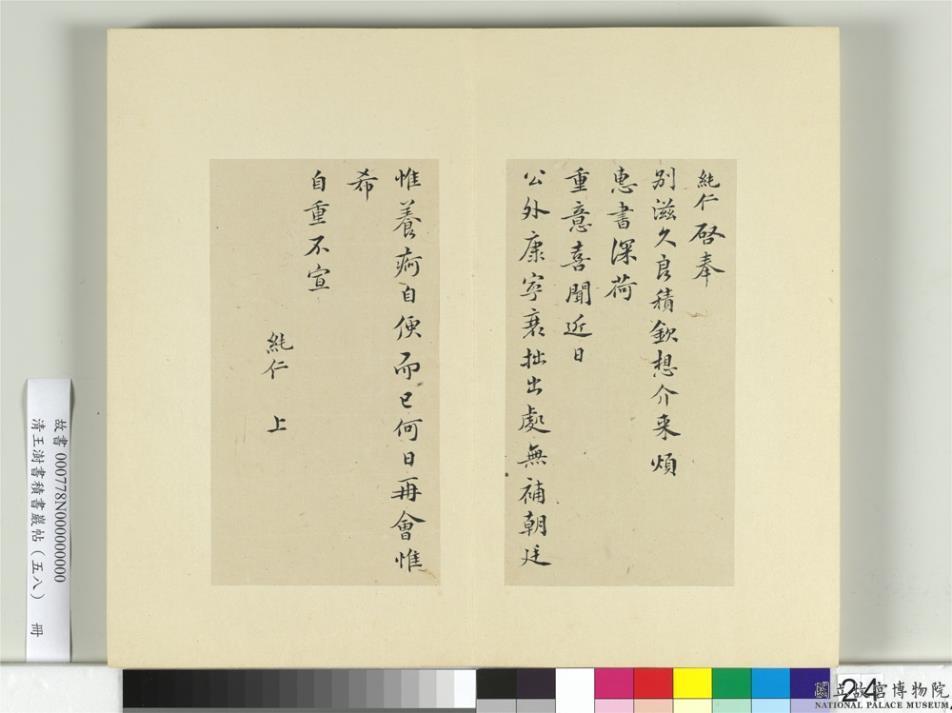 純仁啓奉
別滋久良積欽想介来煩
惠書深荷
重意喜聞近日
公外康寧衰拙出處無補朝廷
惟養痾自便而已何日再會惟
希
自重不宣
純仁 上
故書 000778N000000000
清王澍書積書巖帖（五八） 冊
24
國立故宮博物院
NATIONAL PALACE MUSEUM